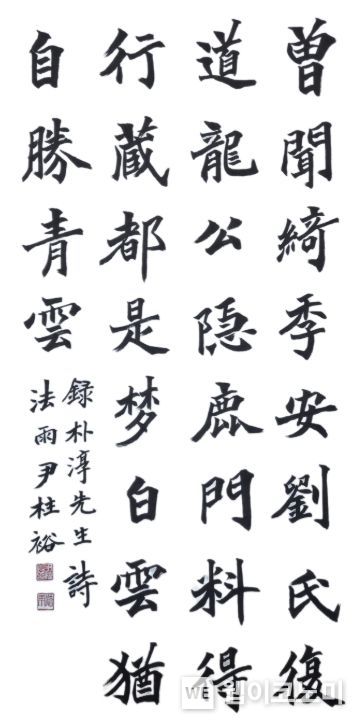 曾聞綺季安劉氏復
道龍公隐鹿門料得
行藏都是梦白雲猶
自勝青雲
録朴淳先生詩
法雨尹柱裕
WE 웹이코노미